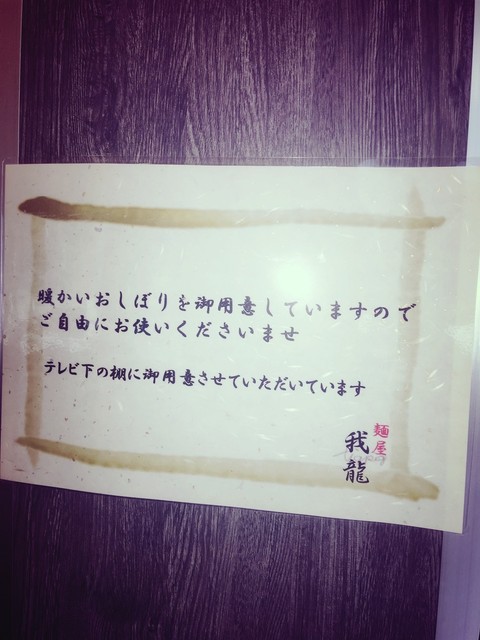 暖かいおしぼりを御用意していますので
ご自由にお使いくださいませ
テレビ下の棚に御用意させていただいています
麺屋
我龍